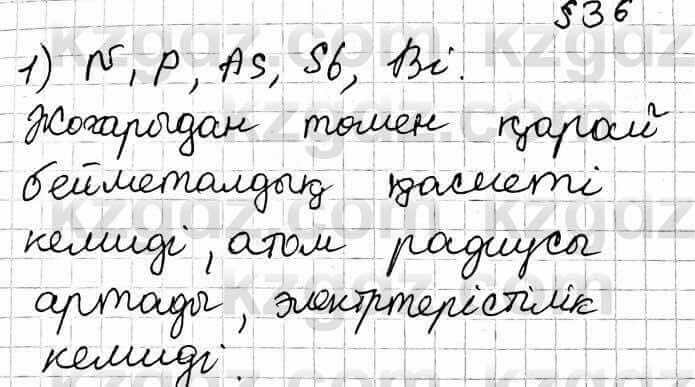 §36
1) N, P, As, Sb, Bi.
Жоғарыдан төмен қарай
бейметалдық қасиеті
кемиді, атом радиусы
артады, электртерістілік
кемиді.